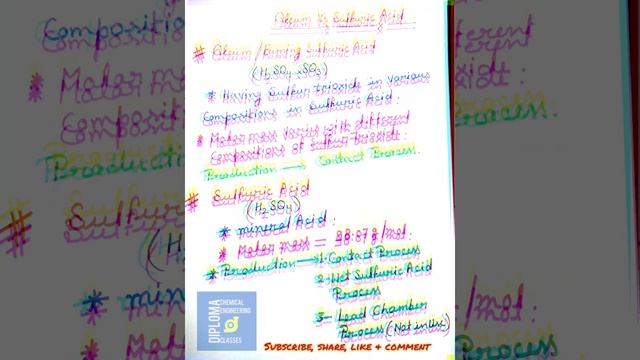 Oleum Vs Sulfuric Acid
# Oleum/Fuming Sulfuric Acid
(H₂SO₄.xSO₃)
* Having Sulfur trioxide in various
Compositions in Sulfuric Acid.
* Molar mass varies with different
Compositions of Sulfur trioxide.
Production → Contact Process.
# Sulfuric Acid
(H₂SO₄)
* mineral Acid.
* Molar mass = 98.07 g/mol.
* Production → 1- Contact Process
2- Wet Sulfuric Acid
Process
3- Lead Chamber
Process (Not in Use)
DIPLOMA
CHEMICAL
ENGINEERING
CLASSES
SUBSCRIBE, SHARE, LIKE + COMMENT